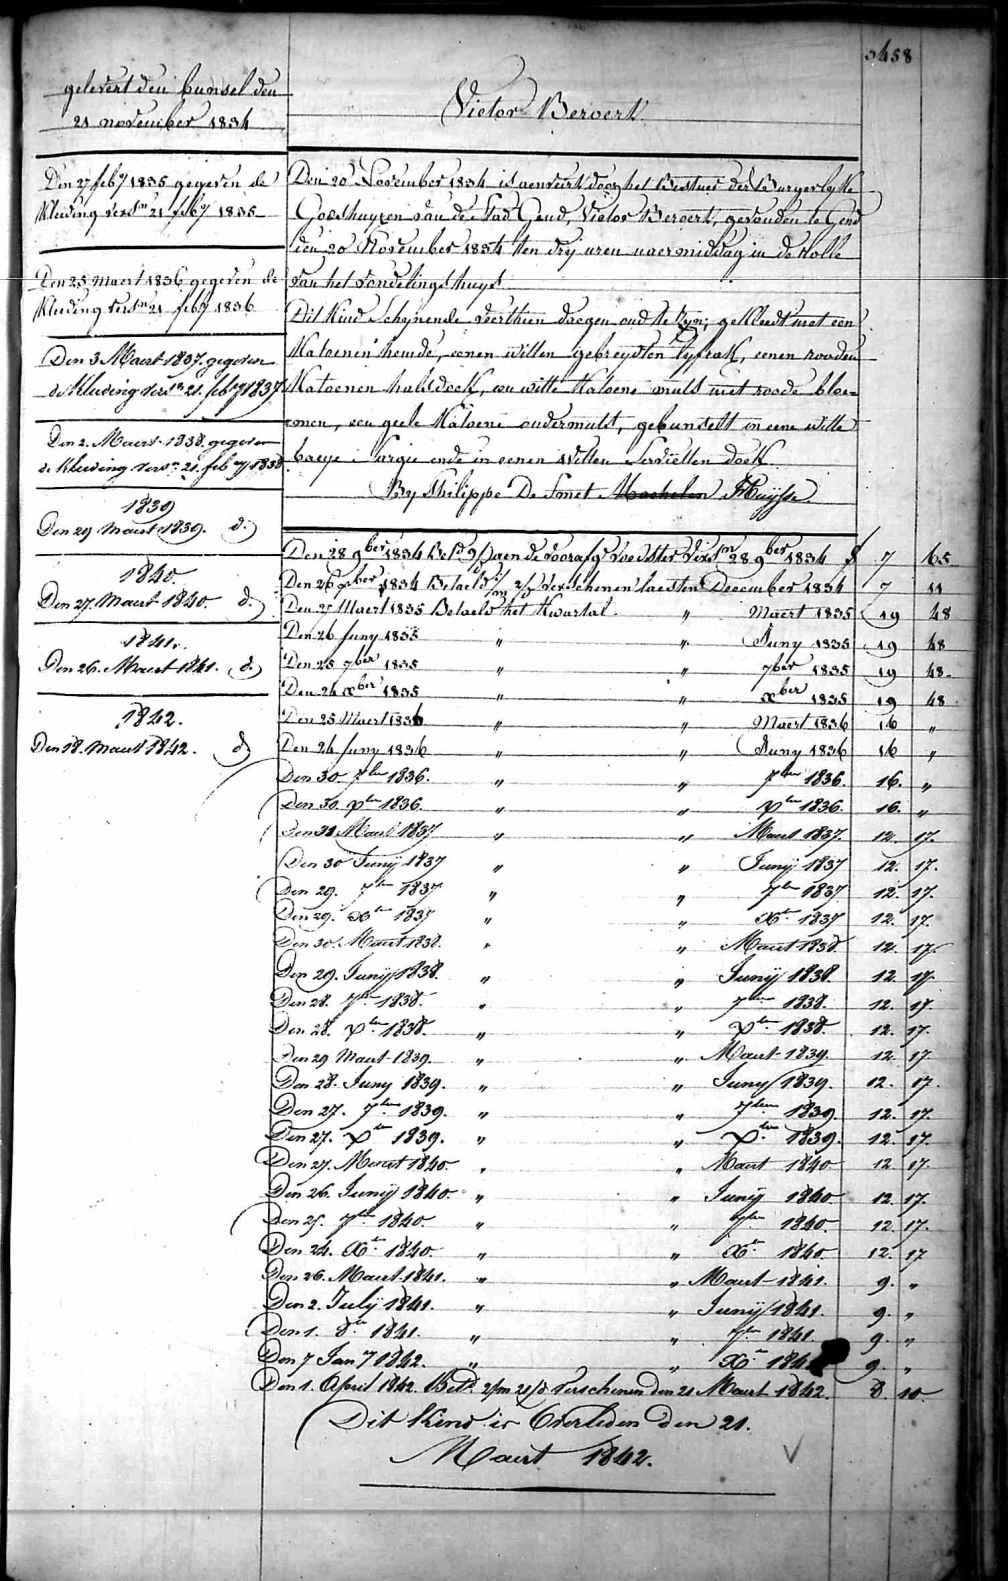 3458
gelevert den bunsel den
21 november 1834
Victor Bervoert
Den 27 feby 1835 gegeven de
kleeding versn 21 feby 1835
Den 25 Maert 1836 gegeven de
kleeding versn 21 feby 1836
Den 3 Maert 1837 gegeven
de kleeding versn 21 feby 1837
Den 2. Maert 1838. gegeven
de kleeding versn 21. feby 1838
1839
Den 29 Maert 1839. d:
1840.
Den 27. Maert 1840. d.
1841.
Den 26. Maert 1841. d.
1842.
Den 18. Maert 1842. d
Den 20 November 1834 is aenveirt door het Bestuer der Burgerlyke
Godshuyzen van de Stad Gend, Victor Bervoert, gevonden te Gend
den 20 November 1834 ten dry uren naermiddag in de Rolle
van het vondelings huys
Dit kind schynende veerthien daegen oud te zyn; gekleedt met een
Katoenen hemde, eenen witten gebreyden lyfrok, eenen rooden
Katoenen halsdoek, een witte Katoene muts met roode bloe=
men, een geele Katoene ondermuts, gebunselt in eene witte
baeye Surgie ende in eenen witten Servietten doek
By Philippe De Smet Machelen Huysse
Den 28 9ber 1834 aen de voorsz Voedster versn 28 9ber 1834 7 65
Den 26 xber 1834 Betaeld verschenen laesten December 1834 7 11
Den 27 Maert 1835 Betaeld het Kwartal " Maert 1835 19 48
Den 26 Juny 1835 " " Juny 1835 19 48
Den 25 7ber 1835 " " 7ber 1835 19 48
Den 24 xber 1835 " " xber 1835 19 48
Den 25 Maert 1836 " " Maert 1836 16 "
Den 24 Juny 1836 " " Juny 1836 16 "
Den 30 7ber 1836. " " 7ber 1836. 16. "
Den 30. xber 1836. " " xber 1836. 16. "
Den 31 Maert 1837 " " Maert 1837. 12. 17.
Den 30 Junij 1837 " " Junij 1837 12. 17.
Den 29. 7ber 1837 " " 7ber 1837 12. 17.
Den 29. Xber 1837 " " Xber 1837 12. 17.
Den 30. Maert 1838. " " Maert 1838 12. 17.
Den 29. Junij 1838. " " Junij 1838. 12. 17.
Den 28. 7ber 1838. " " 7ber 1838. 12. 17.
Den 28. xber 1838. " " xber 1838. 12. 17.
Den 29 Maert 1839. " " Maert 1839. 12. 17.
Den 28. Juny 1839. " " Juny 1839. 12. 17.
Den 27. 7ber 1839. " " 7ber 1839. 12. 17.
Den 27. xber 1839. " " xber 1839. 12. 17.
Den 27. Maert 1840. " " Maert 1840 12. 17.
Den 26. Junij 1840 " " Junij 1840 12. 17.
Den 25. 7ber 1840. " " 7ber 1840. 12. 17.
Den 24. Xber 1840. " " Xber 1840. 12. 17
Den 26. Maert 1841. " " Maert 1841. 9. "
Den 2. Julij 1841. " " Junij 1841. 9. "
Den 1. 8ber 1841. " " 7ber 1841. 9. "
Den 7 Jany 1842. " " Xber 1841 9. "
Den 1. April 1842. Betd. 2/m 21/d verschenen den 21 Maert 1842. 8. 10.
Dit Kind is Overleden den 21.
Maert 1842.